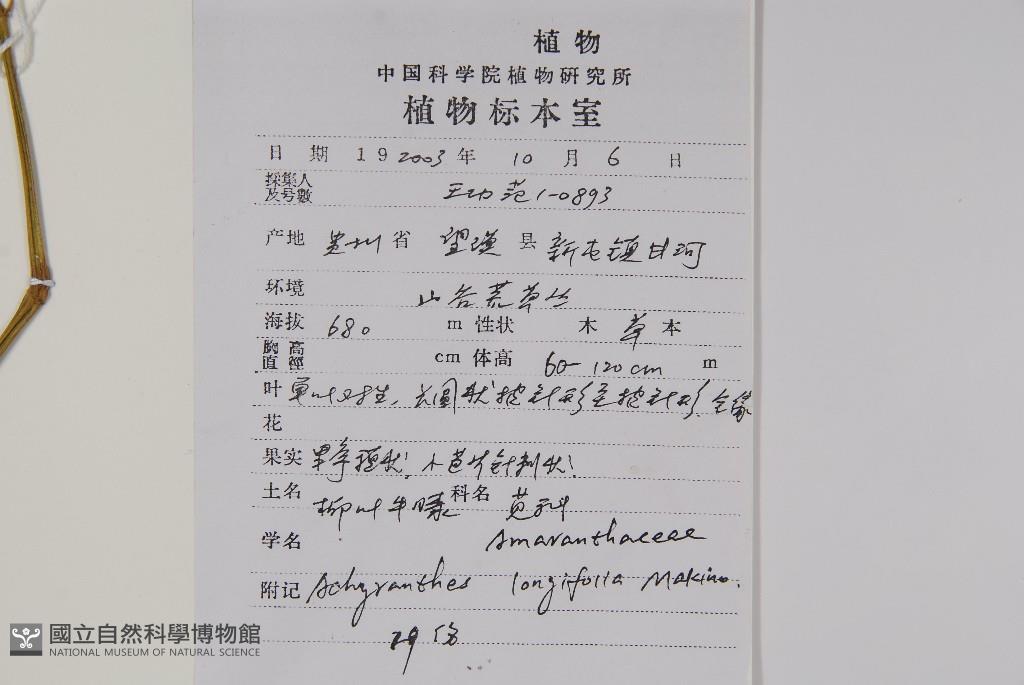 植物
中国科学院植物研究所
植物标本室
日期 19 2003 年 10 月 6 日
採集人及号數 王功范 1-0893
产地 贵州 省 望谟 县 新屯镇甘河
环境 山谷荒草丛
海拔 680 m 性状 木 草 本
胸高直徑 cm 体高 60-120cm m
叶 单叶对生，长圆状披针形至披针形，全缘
花
果实 果穗状！小苞片针刺状！
土名 柳叶牛膝 科名 苋科
学名 Amaranthaceae
附记 Achyranthes longifolia Makino.
19份
國立自然科學博物館
NATIONAL MUSEUM OF NATURAL SCIENCE